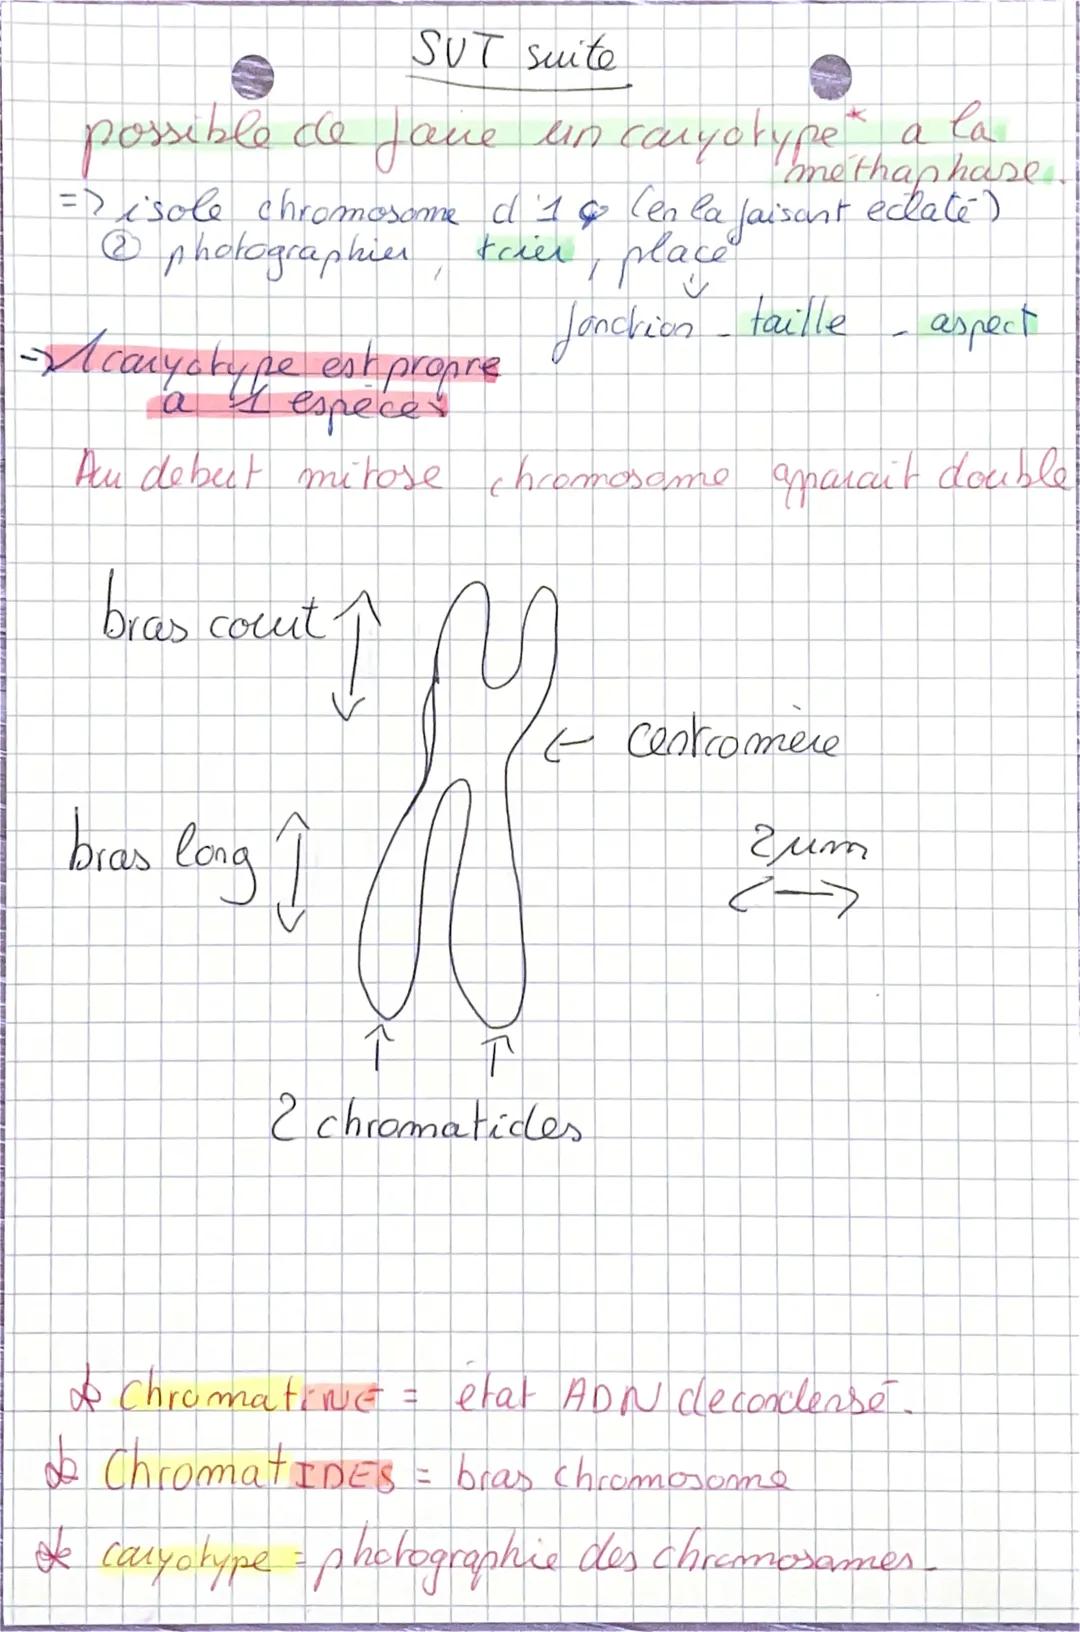 SVT suite
possible de faire un caryotype* a la
méthaphase.
=> isole chromosome d'1 (en la faisant eclaté)
② photographier, trier, place
↓
fonction - taille - aspect
-> 1 caryotype est propre
a 1 espèces
Au debut mitose chromosome apparait double
bras court
← centromère
bras long
2 μm
2 chromatides
* ChromatINE = état ADN decondensé.
* ChromatIDES = bras chromosome
* caryotype = photographie des chromosomes.